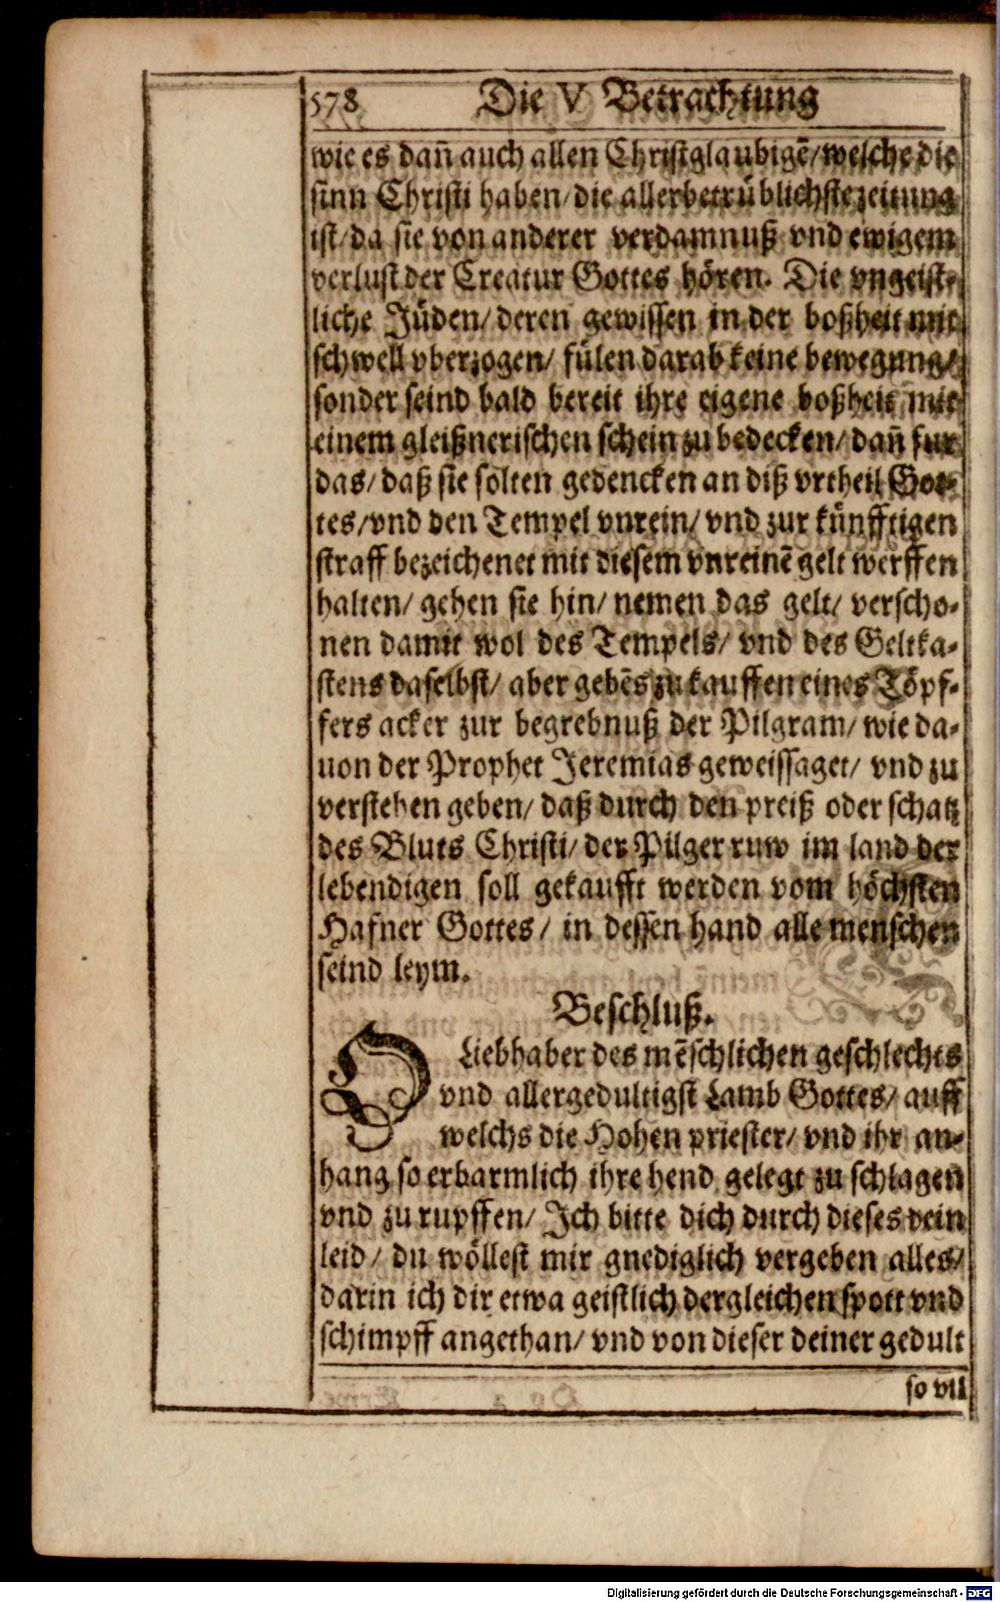 578 Die V Betrachtung
wie es dañ auch allen Christglaubigē/welche die
sinn Christi haben/die allerbetrüblichste zeitung
ist/da sie von anderer verdamnuß vnd ewigem
verlust der Creatur Gottes hören. Die vngeist-
liche Jüden/deren gewissen in der boßheit mit
schwell vberzogen/ fülen darab keine bewegung/
sonder seind bald bereit ihre eigene boßheit mit
einem gleißnerischen schein zu bedecken/ dañ fur
das/ daß sie solten gedencken an diß vrtheil Got-
tes/vnd den Tempel vnrein/ vnd zur künfftigen
straff bezeichenet mit diesem vnreinē gelt werffen
halten/ gehen sie hin/ nemen das gelt/ verscho-
nen damit wol des Tempels/ vnd des Geltka-
stens daselbst/ aber gebēs zu kauffen eines Töpf-
fers acker zur begrebnuß der Pilgram/ wie da-
uon der Prophet Jeremias geweissaget/ vnd zu
verstehen geben/ daß durch den preiß oder schatz
des Bluts Christi/ der Pilger ruw im land der
lebendigen soll gekaufft werden vom höchsten
Hafner Gottes/ in dessen hand alle menschen
seind leym.
Beschluß.
O Liebhaber des mēschlichen geschlechts
vnd allergedultigst Lamb Gottes/ auff
welchs die Hohen priester/ vnd ihr an-
hang so erbarmlich ihre hend gelegt zu schlagen
vnd zu rupffen/ Ich bitte dich durch dieses dein
leid/ du wöllest mir gnediglich vergeben alles/
darin ich dir etwa geistlich dergleichen spott vnd
schimpff angethan/ vnd von dieser deiner gedult
so vil
Digitalisierung gefördert durch die Deutsche Forschungsgemeinschaft - DFG